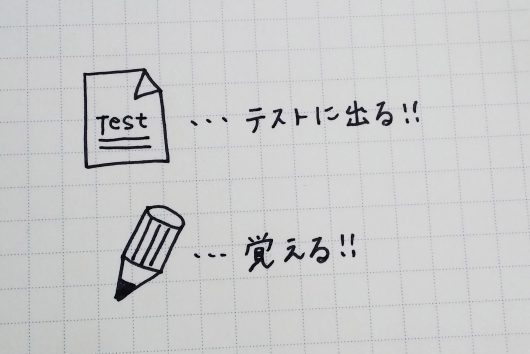 Test ... テストに出る!!
... 覚える!!